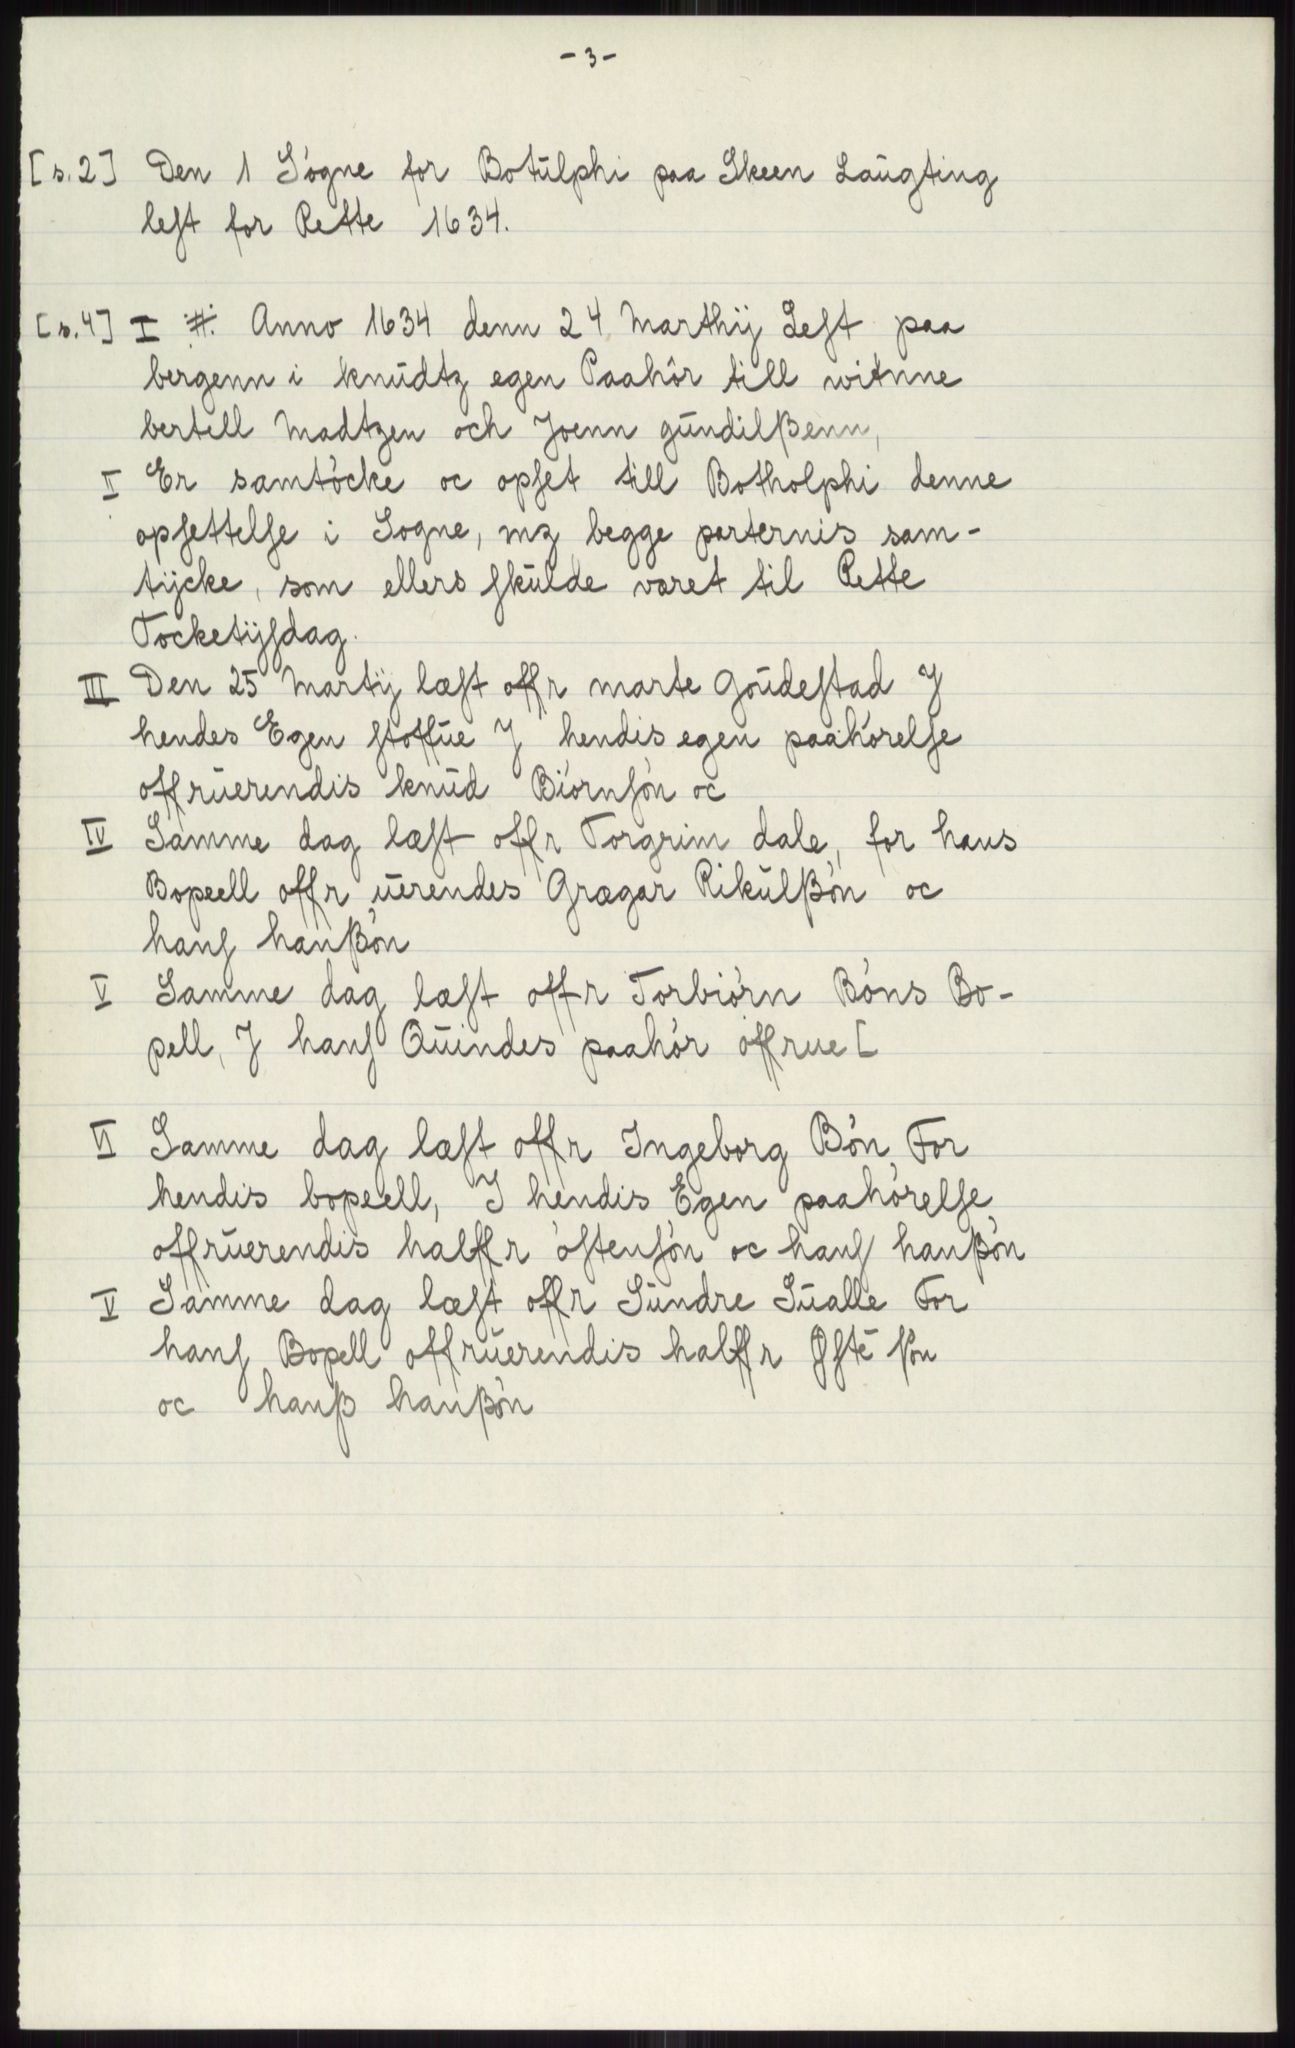 - 3 -
[s.2] Den 1 Sógne for Botúlphi paa Skeen Laúgting
lest for Rette 1634.
[s.4] I #. Anno 1634 denn 24 Marthij Lest paa
bergenn i knúdtz egen Paahôr till witnne
bertell Madtzen och Joenn gúndilßenn,
I Er samtócke oc opset till Botholphi denne
opsettelse i Sogne, mz begge parternis sam-
tÿcke, som ellers skúlde varet til Rette
Tocketijsdag.
III Den 25 Martij læst offr marte Goúdestad J
hendes Egen stoffúe J hendis egen paahórelse
offrúerendis knúd Biórnsón oc
IV Samme dag læst offr Torgrim dale, for hans
Bopeell offr úerendes Grægar Rikúlßón oc
hans hanßón
V Samme dag læst offr Torbiórn Bóns Bo-
pell, J hans Qúindes paahór offrue[
VI Samme dag læst offr Ingeborg Bón For
hendis bopeell, J hendis Egen paahórelse
offrúerendis halffr óstensón oc hans hanßón
V Samme dag læst offr Súndre Súalle For
hans Bopell offrúerendis halffr Østē són
oc hanß hanßón